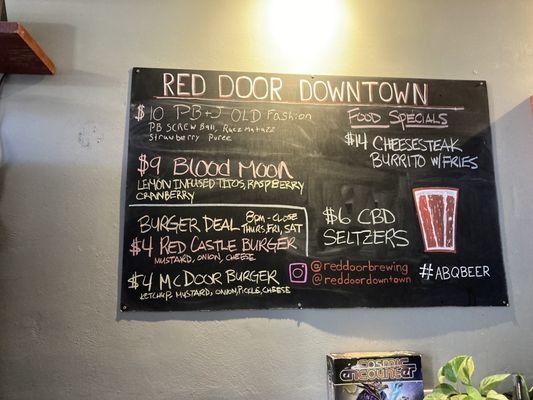 RED DOOR DOWNTOWN
$10 PB+J OLD Fashion
PB SCREW Ball, Razzmatazz
Strawberry Puree
$9 BLOOD MOON
LEMON INFUSED TITOS, RASPBERRY
CRANBERRY
BURGER DEAL 8PM-CLOSE
THURS, FRI, SAT
$4 RED CASTLE BURGER
MUSTARD, ONION, CHEESE
$4 McDOOR BURGER
KETCHUP, MUSTARD, ONION, PICKLE, CHEESE
FOOD SPECIALS
$14 CHEESESTEAK
BURRITO W/FRIES
$6 CBD
SELTZERS
@reddoorbrewing
@reddoordowntown
#ABQBEER
COSMIC
encounter